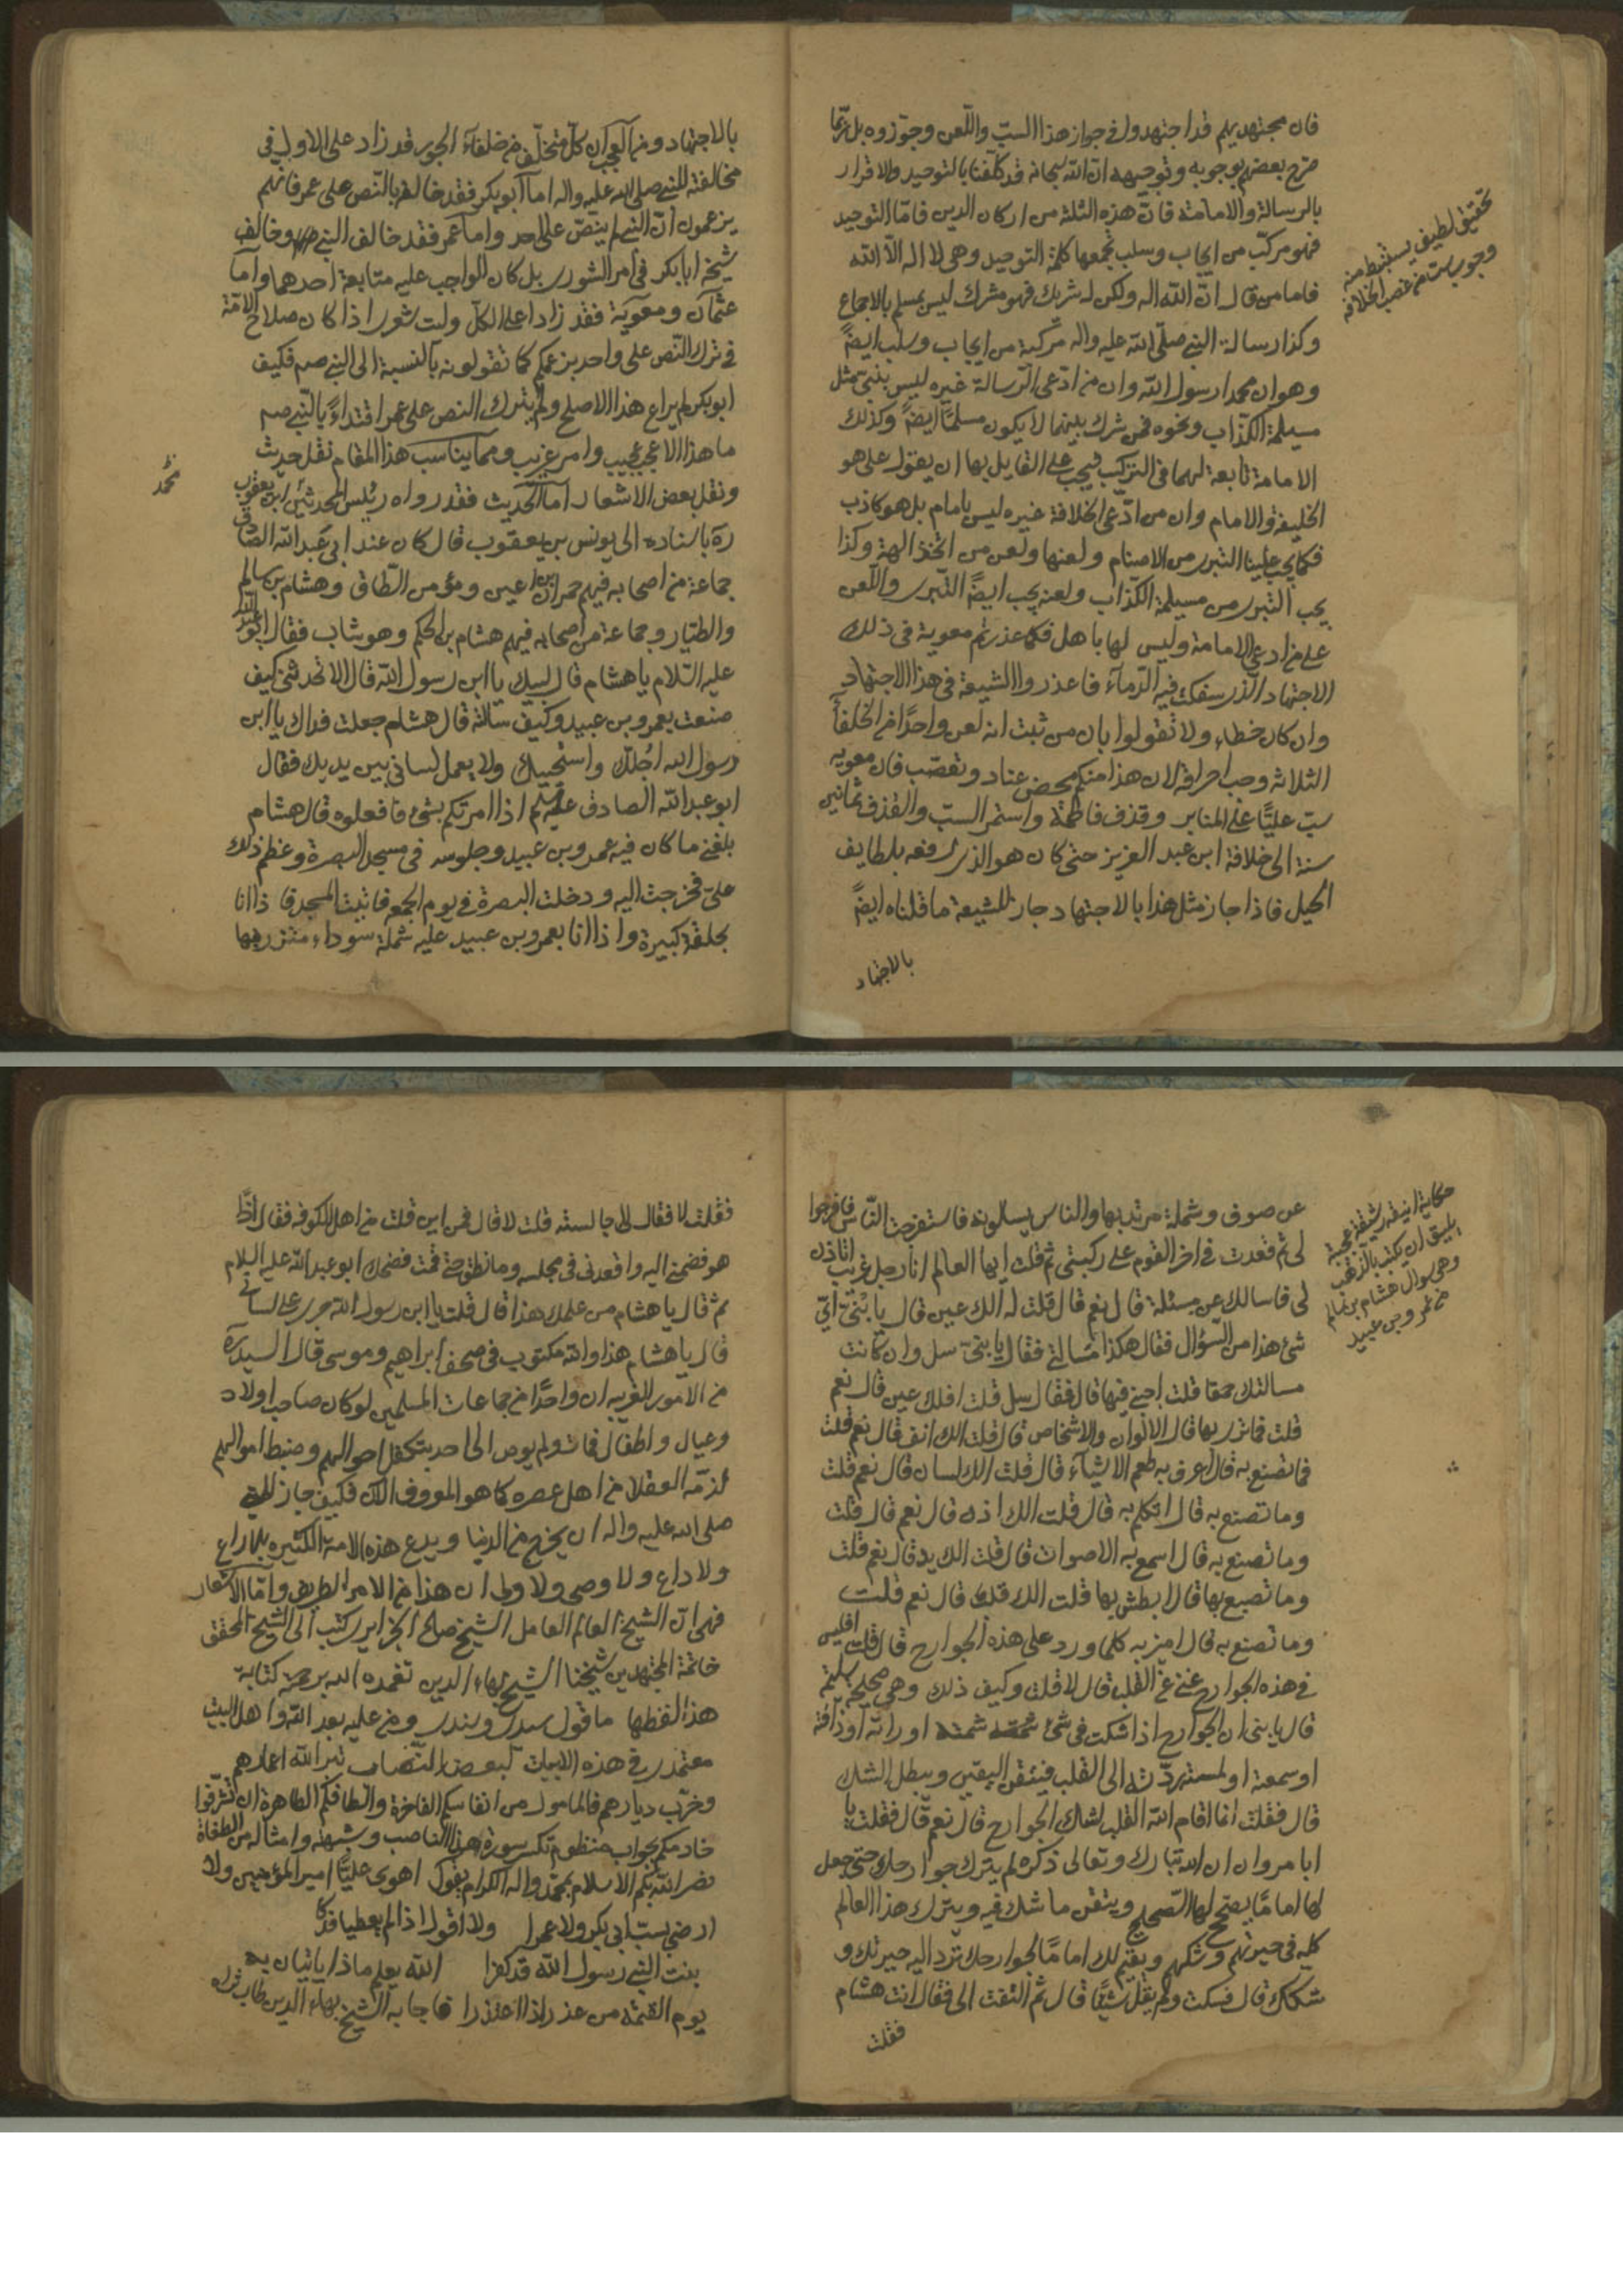 فان مجتهديهم قد اجتهدوا في جواز هذا السبّ واللّعن وجوّزوه بل ربّما
صرح بعضهم بوجوبه وتوجيهه ان الله سبحانه قد كلّفنا بالتوحيد والاقرار
بالرسالة والامامة فانّ هذه الثلثة من اركان الدين فامّا التوحيد
فهو مركّب من ايجاب وسلب تجمعها كلمة التوحيد وهي لا اله الّا الله
فاما من قال انّ الله اله ولكن له شريك فهو مشرك ليس بمسلم بالاجماع
وكذا رسالة النبي صلّى الله عليه واله مركبة من ايجاب وسلب ايضً
وهو ان محمدا رسول الله وان من ادّعى الرسالة غيره ليس بنبي مثل
مسيلمة الكذّاب ونحوه فمن شرك بينهما لا يكون مسلمًا ايضً وكذلك
الامامة تابعة لهما في التركيب فيجب على القايل بها ان يقول علي هو
الخليفة والامام وان من ادّعى الخلافة غيره ليس بامام بل هو كاذب
فكما يجب علينا التبري من الاصنام ولعنها ولعن من اتخذ الهة وكذا
يجب التبري من مسيلمة الكذّاب ولعنه يجب ايضً التبري واللّعن
على من ادعى الامامة وليس لها باهل فكما عذرتم معوية في ذلك
الاجتهاد الذي سفكت فيه الدّمآء فاعذروا الشيعة في هذا الاجتهاد
وان كان خطاء ولا تقولوا بان من ثبت انه لعن واحدًا من الخلفآء
الثلاثه وجب احراقه لان هذا منكم محض عناد وتعصّب فان معويه
سبّ عليًّا على المنابر وقذف فاطمة واستمر السبّ والقذف ثمانين
سنة الى خلافة ابن عبد العزيز حتى كان هو الذي رفعه بلطايف
الحيل فاذا جاز مثل هذا بالاجتهاد جاز للشيعة ما قلناه ايضً
بالاجتهاد
تحقيق لطيف يستنبط منه
وجوب سبّ من غصب الخلافه
بالاجتهاد ومن العجب ان كلّ متخلّف من خلفآء الجور قد زاد على الاول في
مخالفته للنبي صلى الله عليه واله اما ابو بكر فقد خالفه بالنّص على عمر فانهم
يزعمون انّ النبي لم ينصّ على احد واما عمر فقد خالف النبي وخالف
شيخه ابابكر في امر الشورى بل كان الواجب عليه متابعة احدهما واما
عثمان ومعوية فقد زادا على الكلّ وليت شعري اذا كان صلاح الامّة
في ترك النّص على واحد بزعمكم كما تقولونه بالنسبة الى النبي صم فكيف
ابو بكر لم يراع هذا الاصلح ولم يترك النص على عمر اقتداءً بالنّبي صم
ما هذا الا عجب عجيب وامر غريب ومما يناسب هذا المقام نقل حديث
ونقل بعض الاشعار اما الحديث فقد رواه رئيس المحدثين ابن يعقوب
ره باسناده الى يونس بن يعقوب قال كان عند ابي عبد الله الصّادق
جماعة من اصحابه فيهم حمران بن اعين ومؤمن الطّاق وهشام بن سالم
والطيّار وجماعة من اصحابه فيهم هشام بن الحكم وهو شاب فقال ابو عبد الله
عليه السّلام يا هشام قال لبيك يا ابن رسول الله قال الا تحدثني كيف
صنعت بعمرو بن عبيد وكيف سالته قال هشام جعلت فداك يا ابن
رسول الله اجُلّك واستحييك ولا يعمل لساني بين يديك فقال
ابو عبد الله الصادق عليه السلم اذا امرتكم بشئ فافعلوه قال هشام
بلغني ما كان فيه عمرو بن عبيد وجلوسه في مسجد البصرة وعظم ذلك
عليّ فخرجت اليه ودخلت البصرة في يوم الجمعه فاتيت المسجد فاذا انا
بحلقة كبيرة واذا انا بعمرو بن عبيد عليه شملة سوداء متزر بها
عن صوف وشملة مرتد بها والناس يسالونه فاستفرجت النّاس فافرجوا
لي ثم قعدت في اخر القوم على ركبتي ثم قلت ايها العالم انا رجل غريب اتاذن
لي فاسالك عن مسئلة قال نعم قال قلت له الك عين قال يا بُنيّ ايّ
شئ هذا من السّؤال فقال هكذا مسالتي فقال يا بنيّ سل وان كانت
مسالتك حمقا قلت اجبني فيها قال فقال سل قلت افلك عين قال نعم
قلت فما ترى بها قال الالوان والاشخاص قال قلت الك انف قال نعم قلت
فما تصنع به قال اعرف به طعم الاشيآء قال قلت الك لسان قال نعم قلت
وما تصنع به قال اتكلم به قال قلت الك اذن قال نعم قال قلت
وما تصنع به قال اسمع به الاصوات قال قلت الك يد قال نعم قلت
وما تصنع بها قال ابطش بها قلت الك قلب قال نعم قلت
وما تصنع به قال اميز به كلما ورد على هذه الجوارح قال قلت افليس
في هذه الجوارح غني عن القلب قال لا قلت وكيف ذلك وهي صحيحة سليمة
قال يا بني ان الجوارح اذا شكت في شئ شمته او راته او ذاقته
او سمعته او لمسته ردّته الى القلب فيتيقن اليقين ويبطل الشك
قال فقلت انما اقام الله القلب لشك الجوارح قال نعم قال فقلت يا
ابا مروان ان الله تبارك وتعالى ذكره لم يترك جوارحك حتى جعل
لها امامًا يصحح لها الصّحيح ويتقن ما شك فيه ويترك هذا العالم
كله في حيرتهم وشكهم ويقيم لك امامًا لجوارحك ترد اليه حيرتك و
شكك قال فسكت ولم يقل شيئًا قال ثم التفت الى فقال انت هشام
فقلت
حكاية انيقة رشيقة عجيبة
يليق ان يكتب بالذهب
وهي سوال هشام بن سالم
من عمرو بن عبيد
فقلت لا فقال لي جالسته قلت لا قال فمن اين قلت من اهل الكوفه فقال اذًا
هو فضمني اليه واقعدني في مجلسه وما نطق حتى قمت فضحك ابو عبد الله عليه السلام
ثم قال يا هشام من علمك هذا قال قلت يا ابن رسول الله جرى على لساني
قال يا هشام هذا والله مكتوب في صحف ابراهيم وموسى قال السيد ره
من الامور الغريبه ان واحدًا من جماعات المسلمين لو كان صاحب اولاد
وعيال واطفال فمات ولم يوص الى احد يتكفل احوالهم وضبط اموالهم
لذمّه العقلا من اهل عصره كما هو المعروف فكيف جاز للنبي
صلى الله عليه واله ان يخرج من الدنيا ويدع هذه الامة الكثيره بلا راع
ولا داع ولا وصي ولا ولي ان هذا من الامر الطريف وامّا الاشعار
فهي انّ الشيخ العالم العامل الشيخ صالح الجزايري كتب الى الشيخ المحقق
خاتمة المجتهدين شيخنا الشيخ بهاء الدين تغمده الله برحمته كتابة
هذا لفظها ما قول سيدي وسندي ومن عليه بعد الله واهل البيت
معتمدي في هذه الابيات لبعض النصاب تبر الله اعمارهم
وخرّب ديارهم فالمامول من انفاسكم الفاخرة والطافكم الطاهرة ان تشرّفوا
خادمكم بجواب منظوم تكسر سورة هذا الناصب وشبهته وامثاله من الطغاة
نصر الله بكم الاسلام بمحمّد واله الكرام بقول اهوى عليًّا امير المؤمنين ولا
ارضى بسبّ ابي بكر ولا عمرا ولا اقول اذا لم يعطيا فدكا
بنت النبي رسول الله قد كفرا الله يعلم ماذا ياتيان به
يوم القيمة من عذر اذا اعتذرا فاجابه الشيخ بهاء الدين طاب ثراه